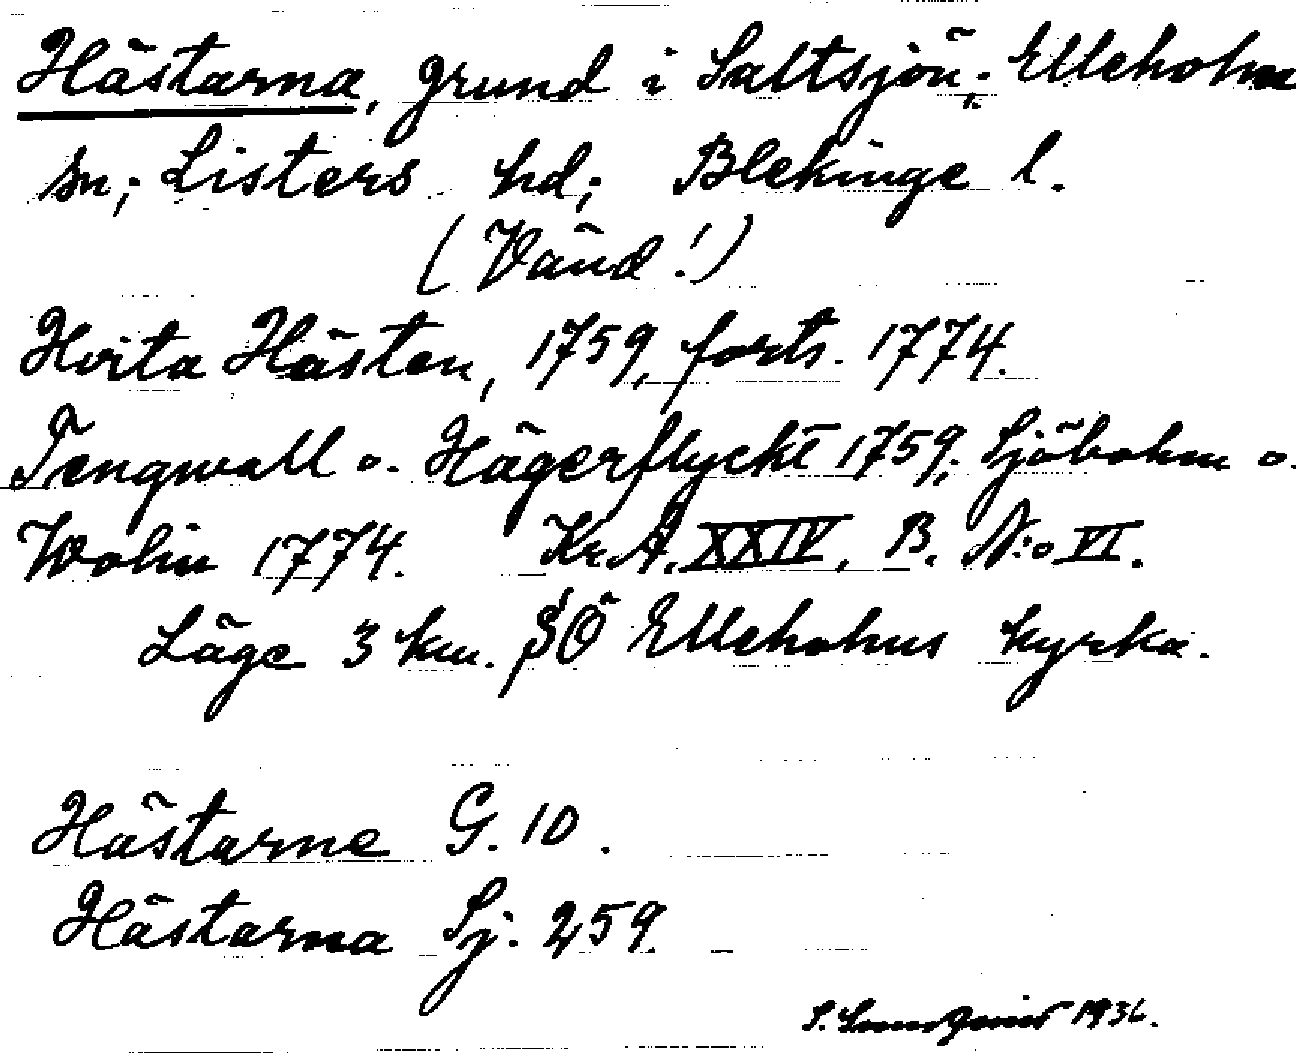 Hästarna, grund i Saltsjön; Elleholm
sn; Listers hd; Blekinge l.
(Vänd!)
Hvita Hästen, 1759, forts. 1774.
Tengwall o. Hägerflyckt 1759; Sjöbohm o.
Wolin 1774. Kr.A. XXIV, B. N:o VI.
Läge 3 km. SÖ Elleholms kyrka.
Hästarne G. 10.
Hästarna Sj. 259.
S. 1936.